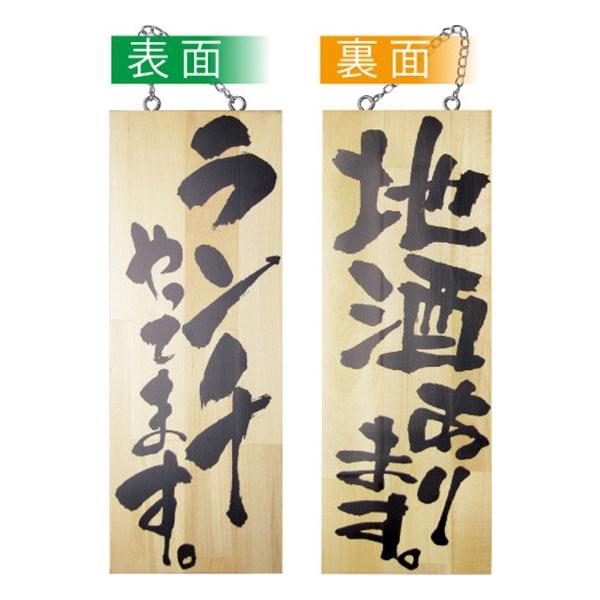 表面
ランチ
やってます。
裏面
地酒
あり
ます。